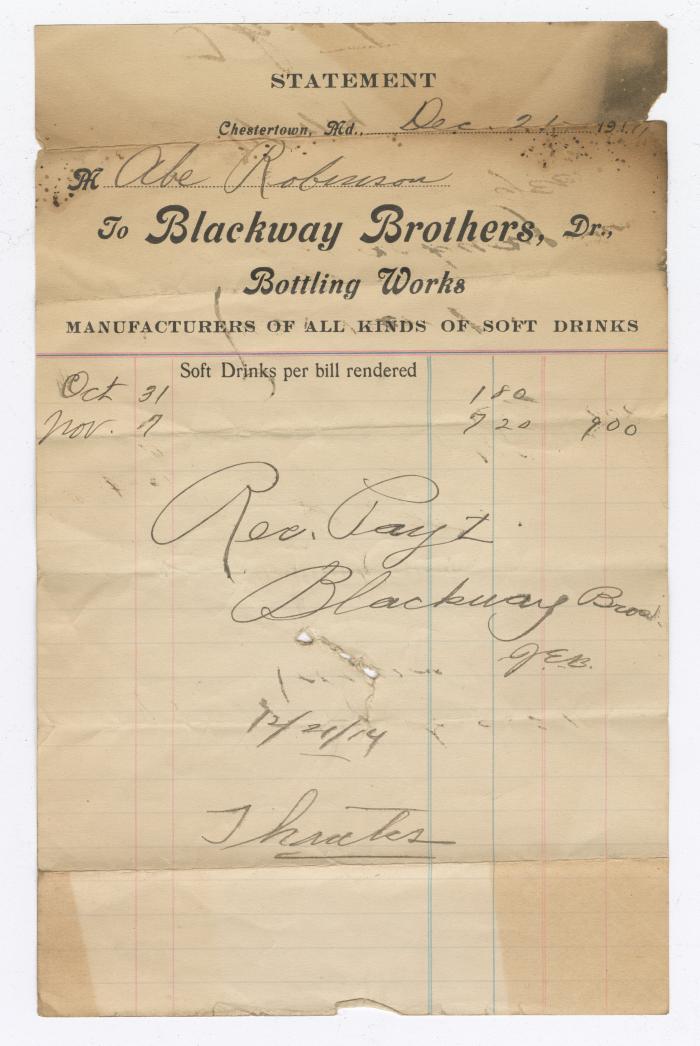 STATEMENT
Chestertown, Md., Dec. 21 1914
M Abe Robinson
To Blackway Brothers, Dr.,
Bottling Works
MANUFACTURERS OF ALL KINDS OF SOFT DRINKS
Soft Drinks per bill rendered
Oct 31 1 80
Nov. 7 7 20 9 00
Rec. Payt.
Blackway Bros.
J.E.B.
12/21/14
Thanks